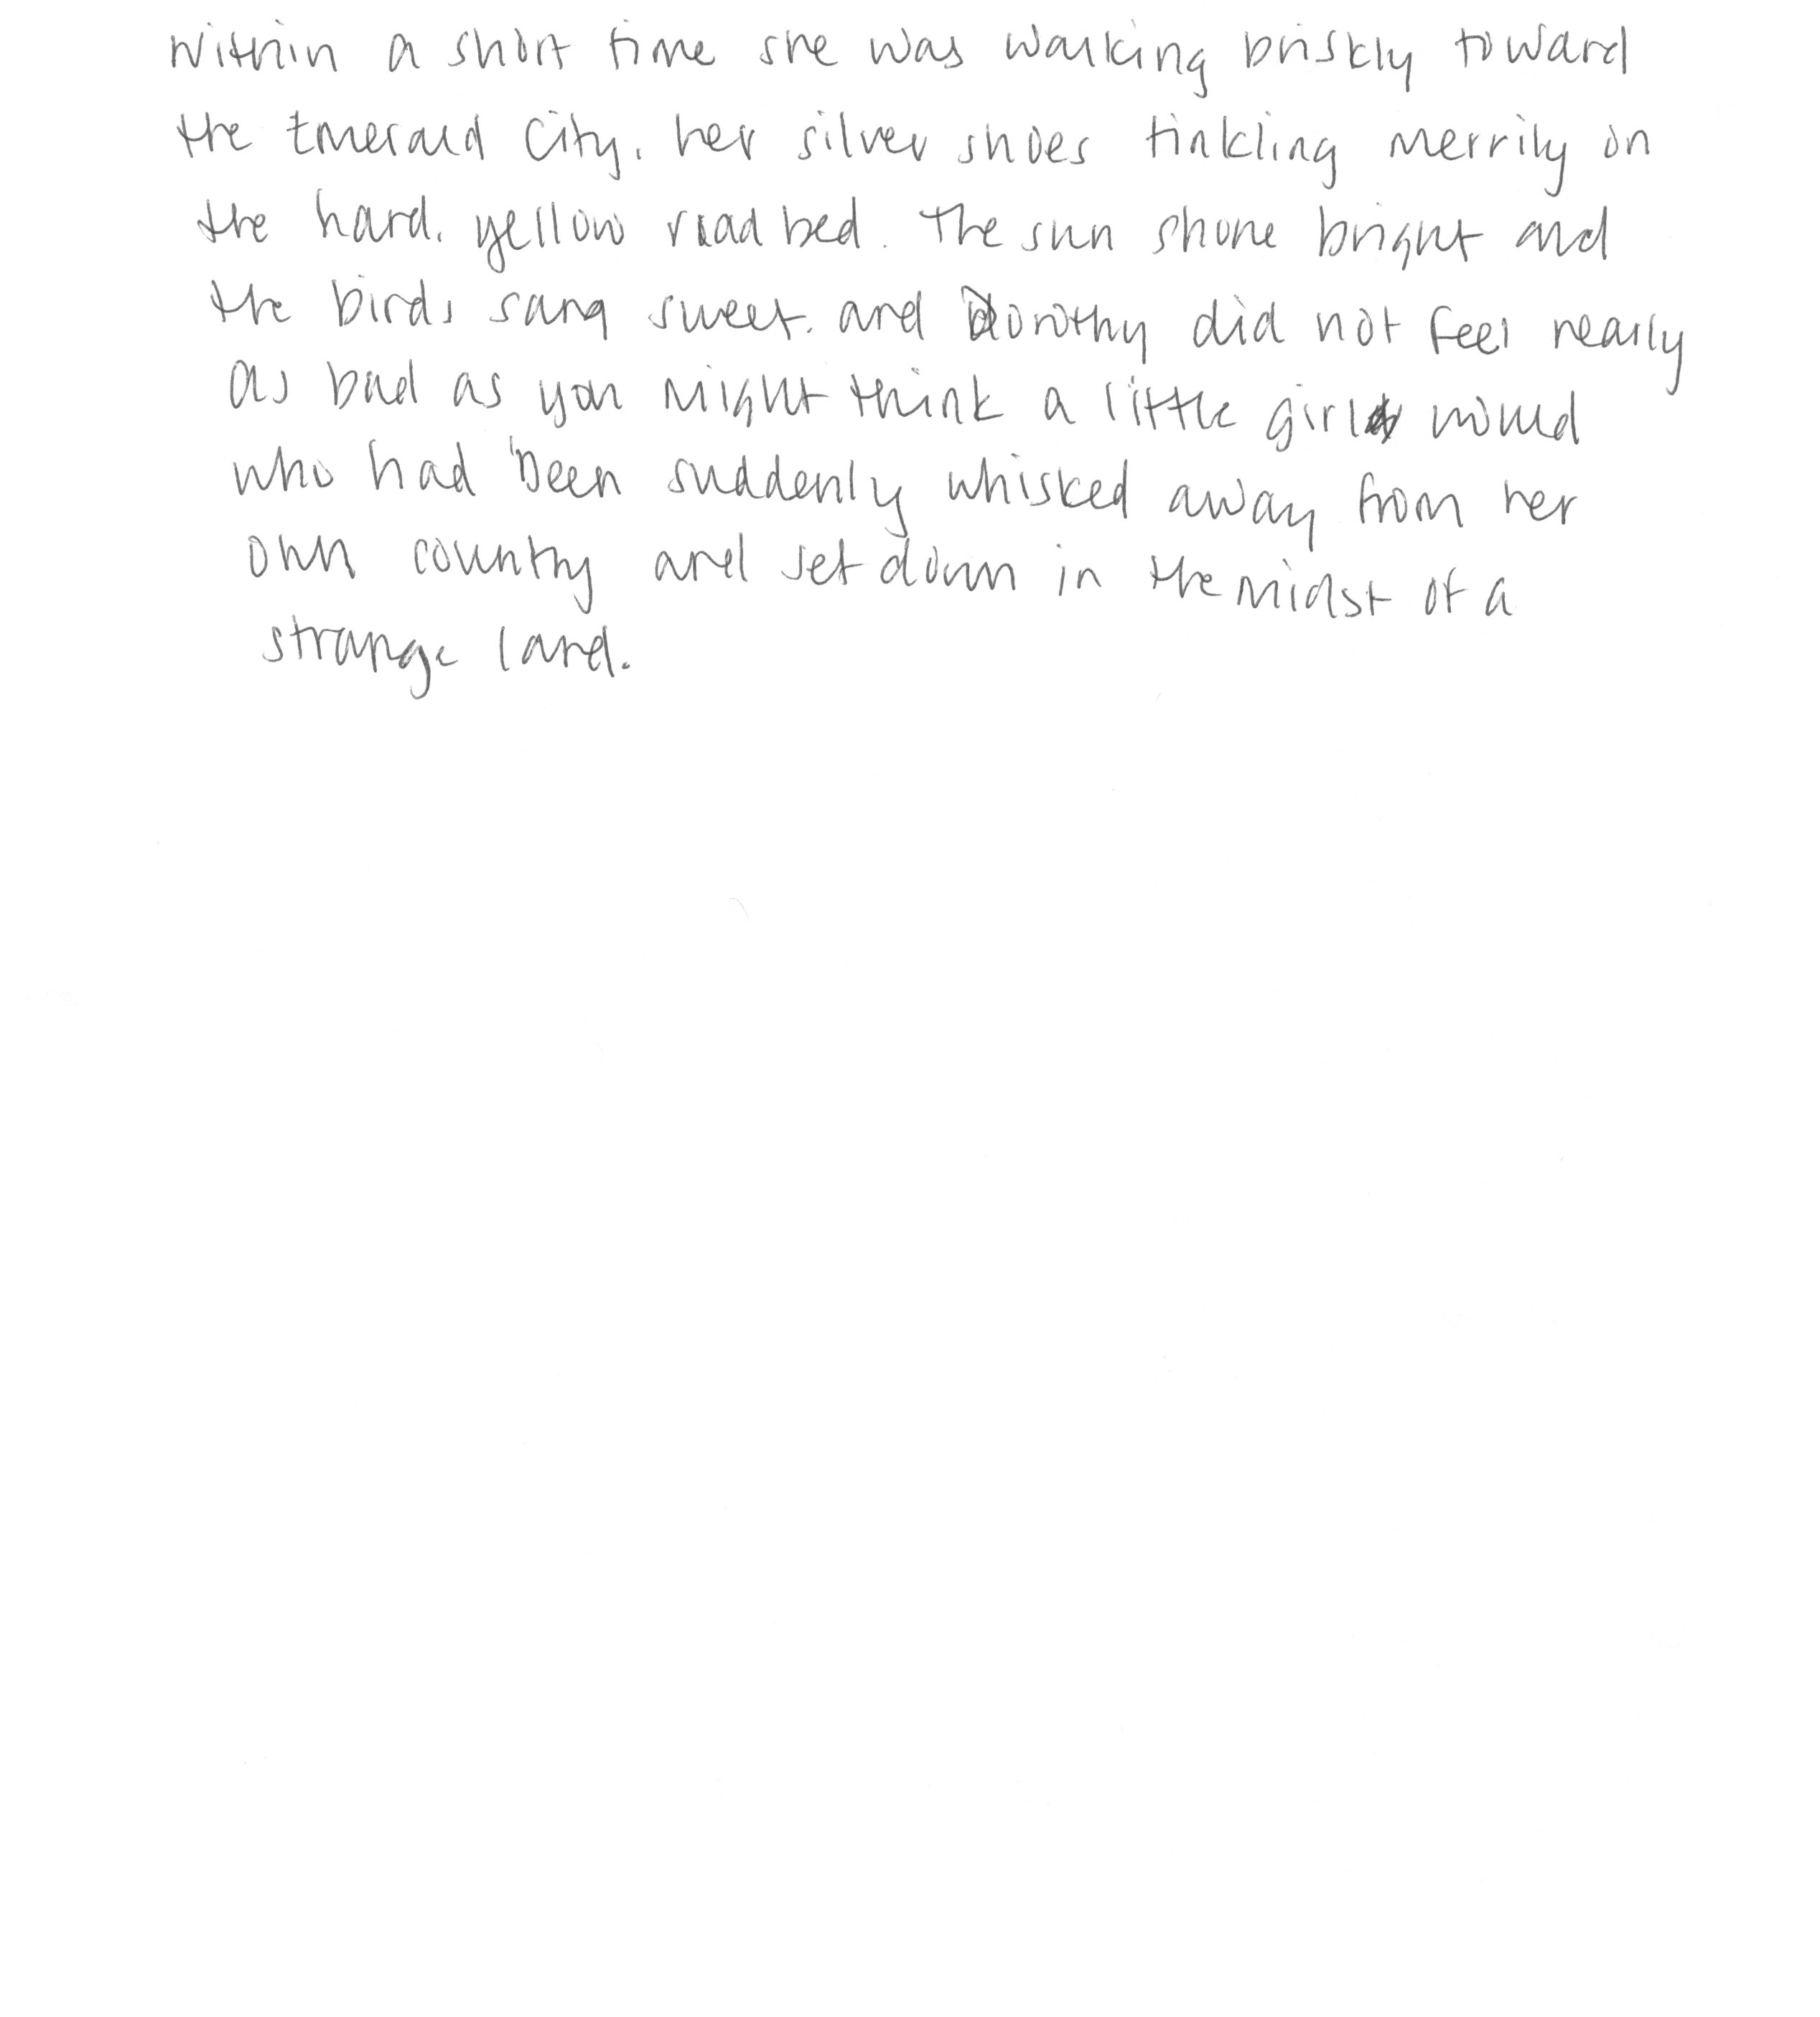 Within a short time she was walking briskly toward
the Emerald City, her silver shoes tinkling merrily on
the hard, yellow roadbed. The sun shone bright and
the birds sang sweet, and Dorothy did not feel nearly
as bad as you might think a little girl would
who had been suddenly whisked away from her
own country and set down in the midst of a
strange land.